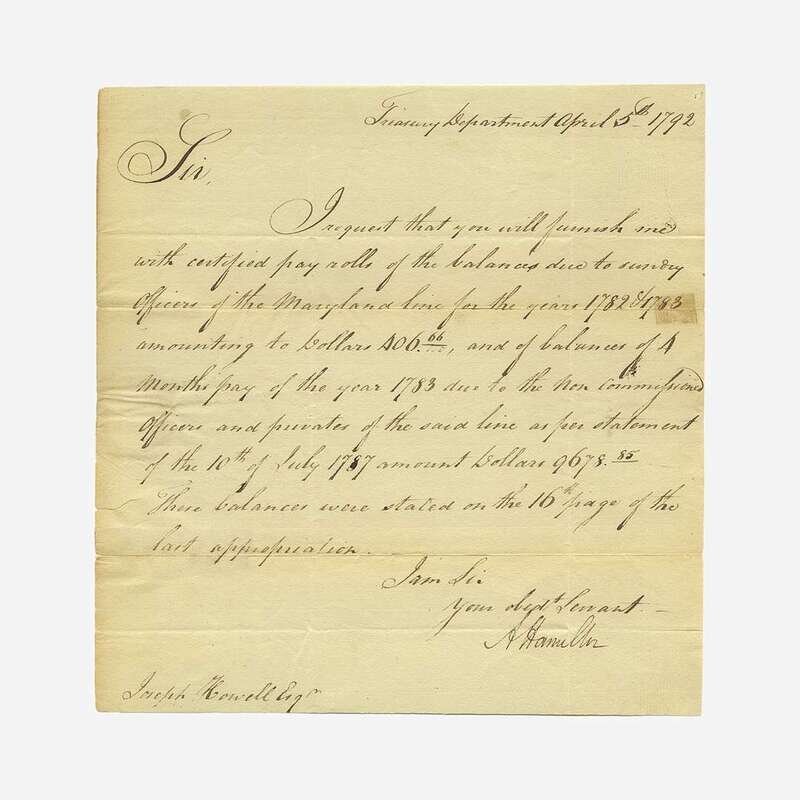 Treasury Department April 5th 1792
Sir,
I request that you will furnish me
with certified pay rolls of the balances due to sundry
officers of the Maryland line for the years 1782 & 1783
amounting to Dollars 406.66, and of balances of 4
Months pay of the year 1783 due to the non commissioned
officers and privates of the said line as per statement
of the 10th of July 1787 amount Dollars 9678.85
These balances were stated on the 16th page of the
last appropriation.
I am Sir
Your obedt Servant
A Hamilton
Joseph Howell Esqr